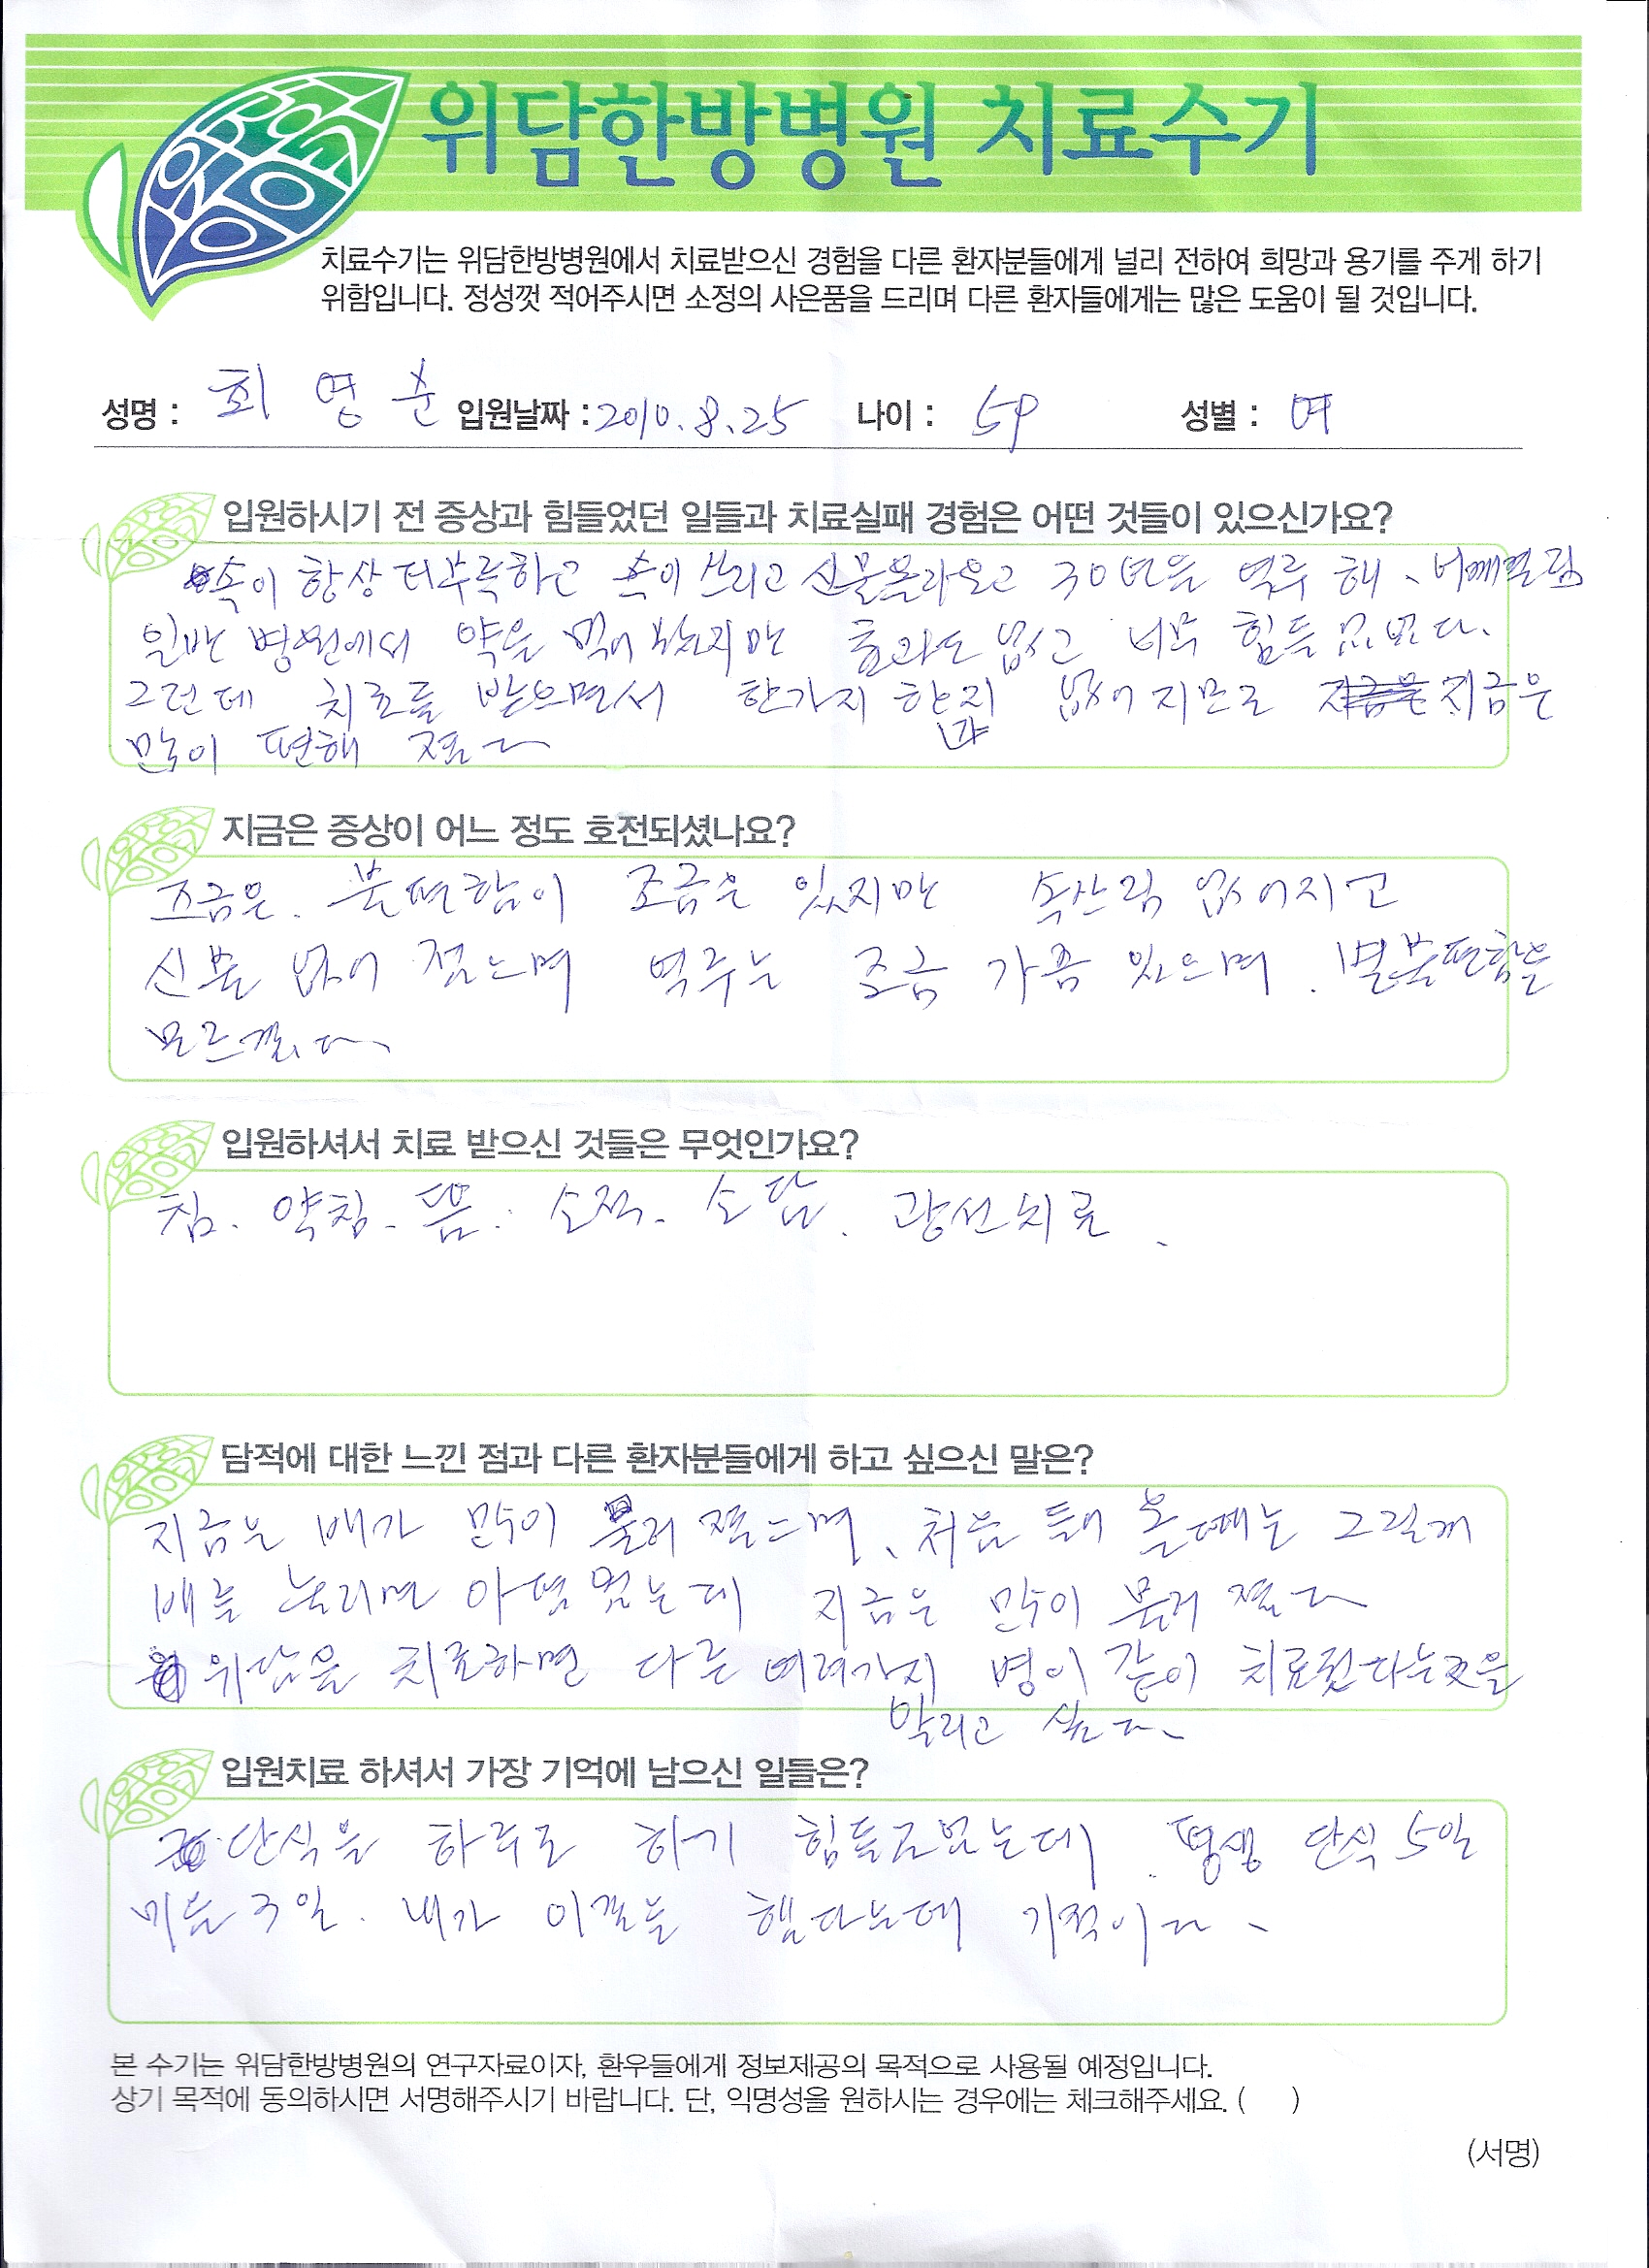 위담한방병원 치료수기
치료수기는 위담한방병원에서 치료받으신 경험을 다른 환자분들에게 널리 전하여 희망과 용기를 주게 하기
위함입니다. 정성껏 적어주시면 소정의 사은품을 드리며 다른 환자들에게는 많은 도움이 될 것입니다.
성명 : 영 입원날짜 : 2010. 8. 25 나이 : 59 성별 : 여
입원하시기 전 증상과 힘들었던 일들과 치료실패 경험은 어떤 것들이 있으신가요?
속이 항상 더부룩하고 속이 쓰리고 신물올라오고 30년을 역류 해.
일반 병원에서 약을 먹어 봤지만 효과도 없고 너무 힘들
그런데 치료를 받으면서 한가지 한가지 없어지므로 지금은
많이 편해 졌다
지금은 증상이 어느 정도 호전되셨나요?
조금은. 불편함이 조금은 있지만 속쓰림 없어지고
신물 없어 졌으며 역류는 조금 가끔 있으며. 별불편함을
모르겠다.
입원하셔서 치료 받으신 것들은 무엇인가요?
침. 약침. 뜸. 소적. 소담. 광선치료.
담적에 대한 느낀 점과 다른 환자분들에게 하고 싶으신 말은?
지금은 배가 많이 물러 졌으며, 처음 올때는 그렇게
배를 눌리면 지금은 많이 물러 졌다
위담을 치료하면 다른 여러가지 병이 같이 치료된다는것을
알리고 싶다.
입원치료 하셔서 가장 기억에 남으신 일들은?
단식을 하루도 하기 평생 단식 5일
미음 3일. 내가 이것을 했다는데 기적이다.
본 수기는 위담한방병원의 연구자료이자, 환우들에게 정보제공의 목적으로 사용될 예정입니다.
상기 목적에 동의하시면 서명해주시기 바랍니다. 단, 익명성을 원하시는 경우에는 체크해주세요. ( )
(서명)